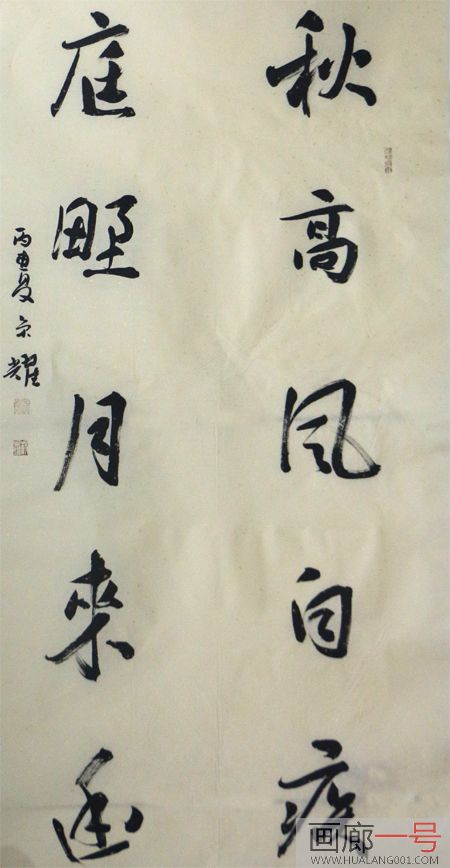 秋高风自疾
庭野月來
丙申夏 京耀
画廊一号
WWW.HUALANG001.COM